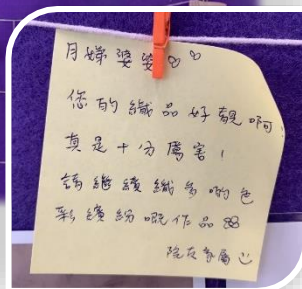 月嫦婆婆
您的織品好靚啊!
真是十分厲害!
請繼續織多啲色
彩繽紛嘅作品
院友家屬